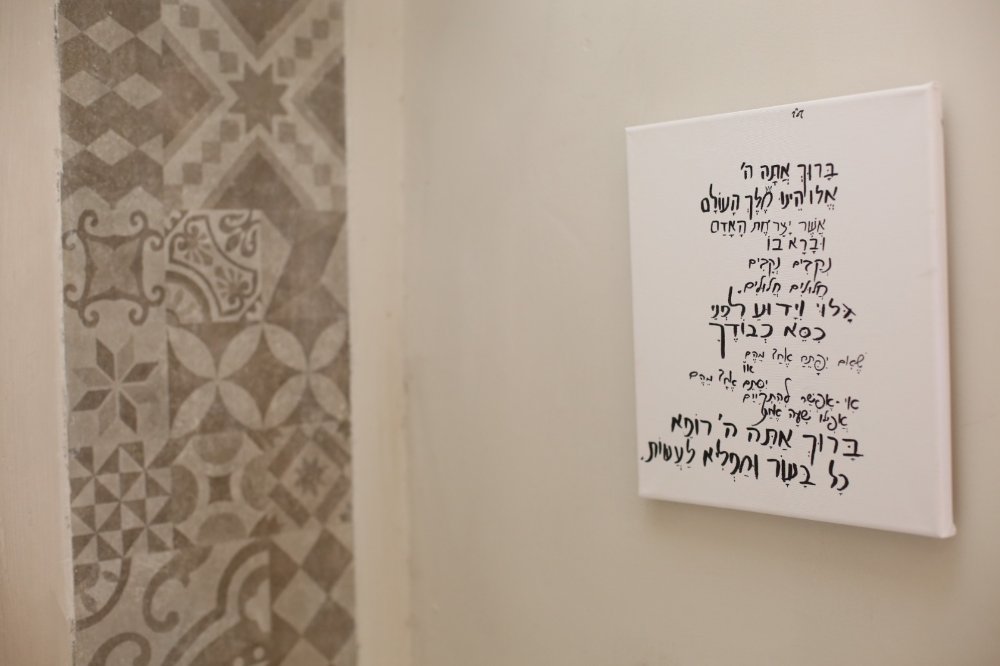 בס"ד
בָּרוּךְ אַתָּה ה'
אֱלוֹהֵינוּ מֶלֶךְ הָעוֹלָם
אֲשֶׁר יָצַר אֶת הָאָדָם
וּבָרָא בוֹ
נְקָבִים נְקָבִים
חֲלוּלִים חֲלוּלִים.
גָּלוּי וְיָדוּעַ לִפְנֵי
כִּסֵּא כְבוֹדֶךָ
שֶׁאִם יִפָּתֵחַ אֶחָד מֵהֶם
אוֹ
יִסָּתֵם אֶחָד מֵהֶם
אִי-אֶפְשָׁר לְהִתְקַיֵּים
אֲפִלּוּ שָׁעָה אַחַת
בָּרוּךְ אַתָּה ה' רוֹפֵא
כָל בָּשָׂר וּמַפְלִיא לַעֲשׂוֹת.